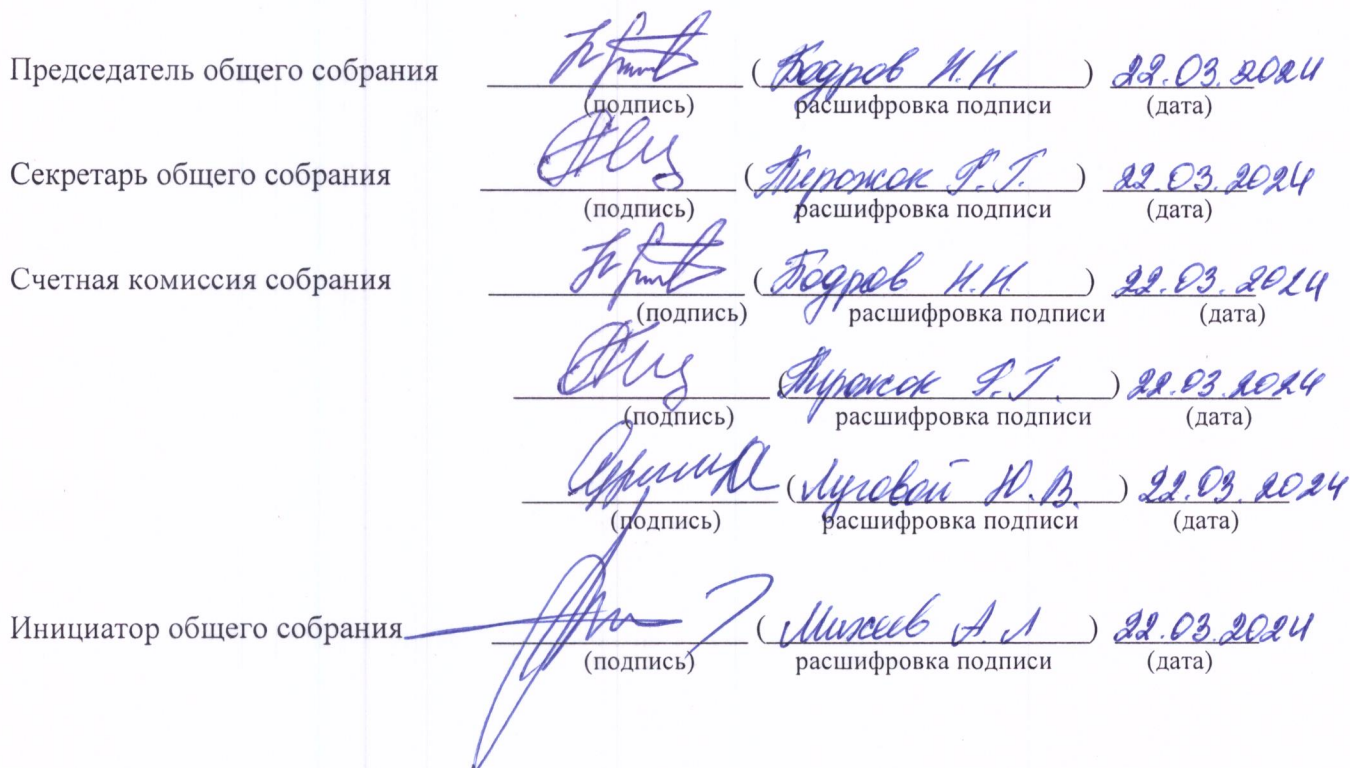 Председатель общего собрания (Бодров Н.Н.) 22.03.2024
(подпись) расшифровка подписи (дата)
Секретарь общего собрания (Пирожок Г.Г.) 22.03.2024
(подпись) расшифровка подписи (дата)
Счетная комиссия собрания (Бодров Н.Н.) 22.03.2024
(подпись) расшифровка подписи (дата)
(Пирожок Г.Г.) 22.03.2024
(подпись) расшифровка подписи (дата)
(Луговой Ю.В.) 22.03.2024
(подпись) расшифровка подписи (дата)
Инициатор общего собрания (Михеев А Л) 22.03.2024
(подпись) расшифровка подписи (дата)